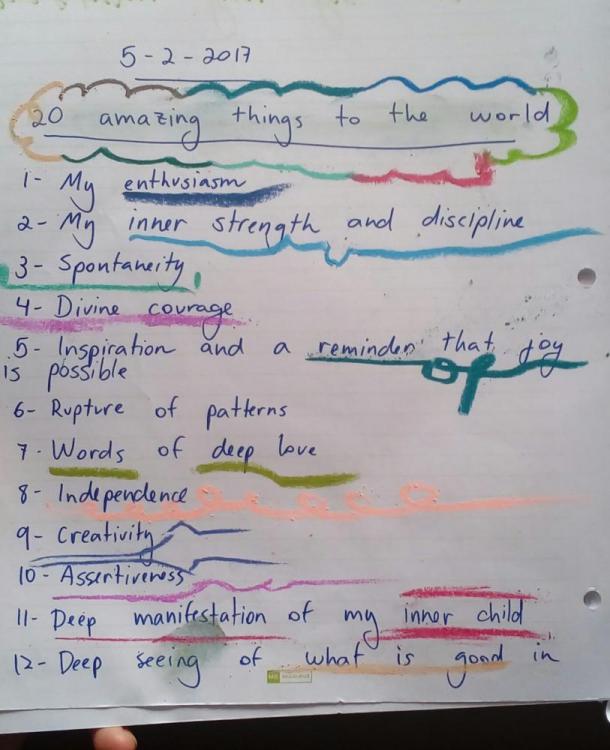 5-2-2017
20 amazing things to the world
1- My enthusiasm
2- My inner strength and discipline
3- Spontaneity
4- Divine courage
5- Inspiration and a reminder that joy
is possible
6- Rupture of patterns
7- Words of deep love
8- Independence
9- Creativity
10- Assertiveness
11- Deep manifestation of my inner child
12- Deep seeing of what is good in